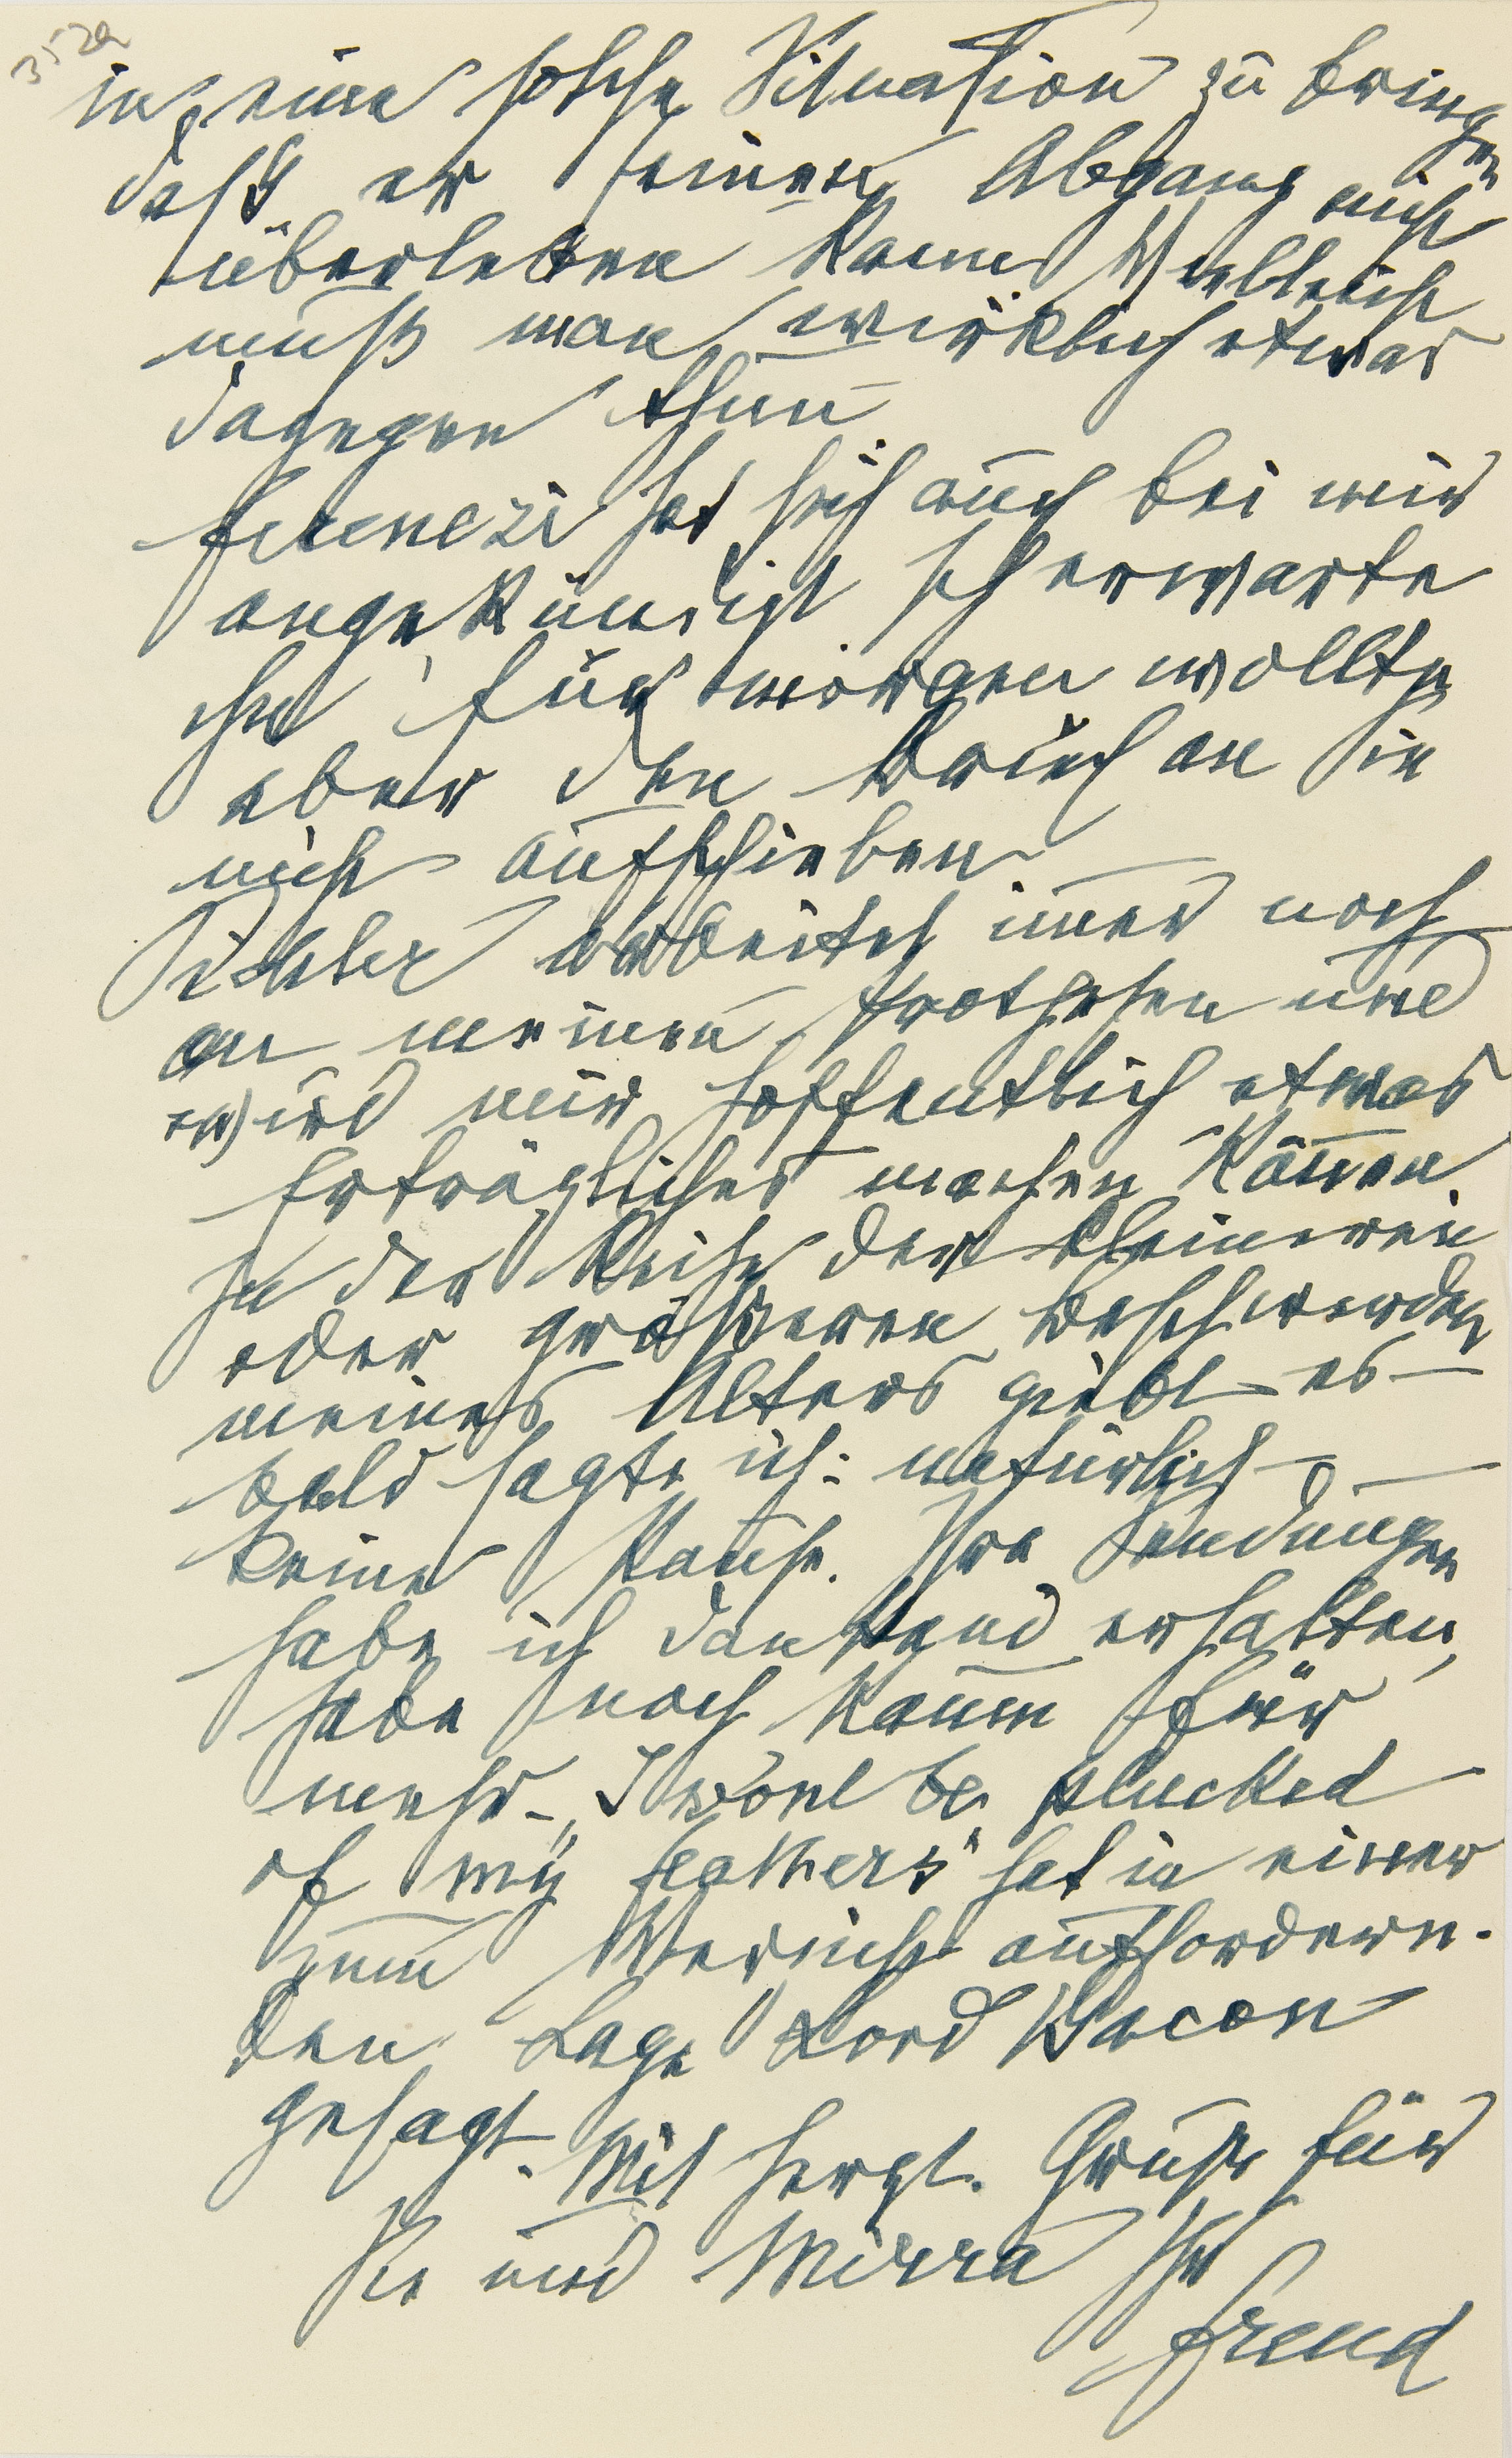 352a
in eine solche Situation zu bringen
daß er seinen Abgang nicht
überleben kann. Vielleicht
muß man wirklich etwas
dagegen thun
Ferenczi hat sich auch bei mir
angekündigt Ich erwarte
ihn für morgen wollte
aber den Brief an Sie
nicht aufschieben
Pichler arbeitet im̄er noch
an meinen Prothesen und
wird mir hoffentlich etwas
Erträgliches machen kön̄en.
In der Reihe der kleineren
oder größeren Beschwerden
meines Alters giebt es –
bald sagte ich: natürlich –
keine Pause. Ihre Sendungen
habe ich dankend erhalten,
habe noch kaum für
mehr – „I wont be plucked
of my feathers" hat in einer
zum Verzicht auffordern-
den Lage Lord Bacon
gesagt. Mit herzl. Gruß für
Sie und Mirra Ihr
Freud